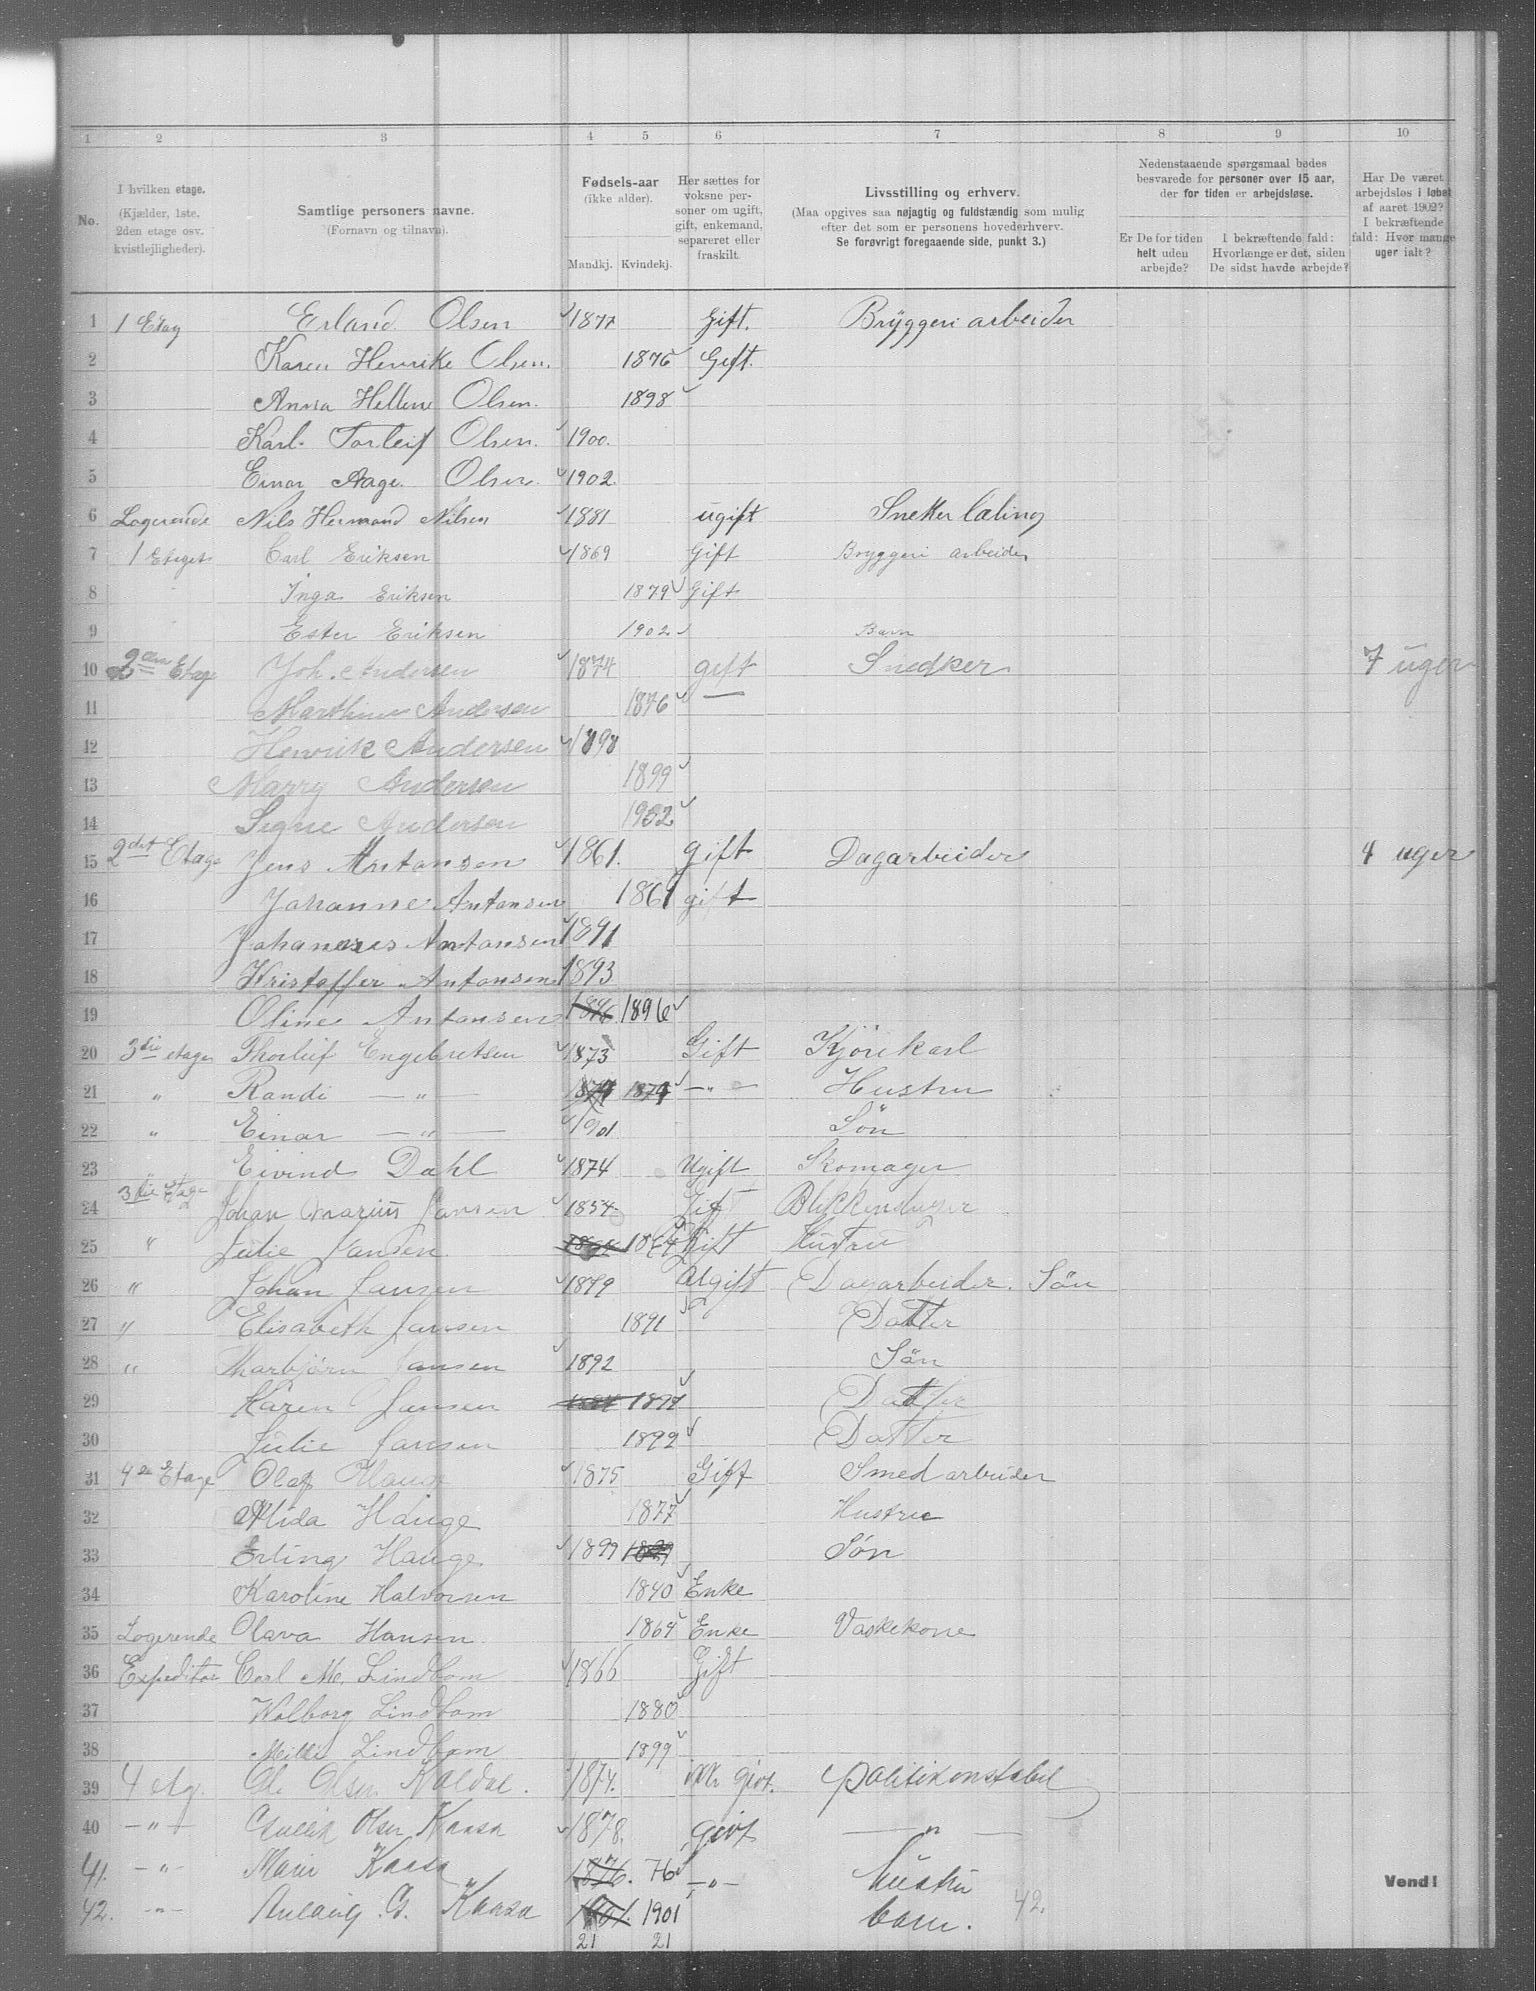 1 2 3 4 5 6 7 8 9 10
No.
I hvilken etage.
(Kjælder, 1ste.
2den etage osv.
kvistlejligheder).
Samtlige personers navne.
(Fornavn og tilnavn).
Fødsels-aar
(ikke alder).
Mandkj. Kvindekj.
Her sættes for
voksne per-
soner om ugift,
gift, enkemand,
separeret eller
fraskilt.
Livsstilling og erhverv.
(Maa opgives saa nøjagtig og fuldstændig som mulig
efter det som er personens hovederhverv.
Se forøvrigt foregaaende side, punkt 3.)
Nedenstaaende spørgsmaal bedes
besvarede for personer over 15 aar,
der for tiden er arbejdsløse.
Er De for tiden
helt uden
arbejde?
I bekræftende fald:
Hvorlænge er det, siden
De sidst havde arbejde?
Har De været
arbejdsløs i løbet
af aaret 1902?
I bekræftende
fald: Hvor mange
uger ialt?
1 1 Etag Erland Olsen 1877 Gift. Bryggeri arbeider
2 Karen Henrike Olsen. 1876 Gift.
3 Anna Hellene Olsen. 1898
4 Karl. Torleif Olsen. 1900.
5 Einar Aage. Olsen. 1902.
6 Logerende Nils Hermand Nilsen 1881 ugift Snekker
7 1 Etaget Carl Eriksen 1869 Gift Bryggeri arbeider
8 Inga Eriksen 1879 Gift
9 Ester Eriksen 1902 Barn
10 2den Etage Joh. Andersen 1874 gift Snedker 7 uger
11 Marthine Andersen 1876 —
12 Henrik Andersen 1898
13 Marry Andersen 1899
14 Signe Andersen 1902
15 2det Etage Jens Antonsen 1861. gift Dagarbeider 4 uger
16 Johanne Antonsen 1861 gift
17 Johannes Antonsen 1891
18 Kristoffer Antonsen 1893
19 Oline Antonsen 1896 1896
20 3die etage Thorleif Engebretsen 1873 Gift Kjörekarl
21 " Randi — " — 1874 1874 — " — Hustru
22 " Einar — " — 1901 Sön
23 " Eivind Dahl 1874 Ugift Skomager
24 3die Etage Johan Marius Jansen 1854. Gift
25 " Julie Jansen 1864 Gift Hustru
26 " Johan Jansen 1879 Ugift Dagarbeider. Sön
27 " Elisabeth Jansen 1891 Datter
28 " Jansen 1892 Sön
29 Karen Jansen 1897 Datter
30 Julie Jansen 1892 Datter
31 4de Etage Olaf Hauge 1875 Gift Smedarbeider
32 Alida Hauge 1877 Hustru
33 Erling Hauge 1899 1899 Søn
34 Karoline Halvorsen 1840 Enke
35 Logerende Olava Hansen 1864 Enke Vaskekone
36 Expeditør Carl M. Lindbom 1866 Gift
37 Walborg Lindbom 1880
38 Milli Lindbom 1899
39 4 etg. Ole Olsen Kaldal. 1874. ikke givt. politikonstabel
40 — " — Olsen Kaasa 1878. givt — " —
41. — " — Marie Kaasa 1876. 76 — " — hustru
42. — " — G. Kaasa 1901. 1901 barn. 42.
21 21
Vend!